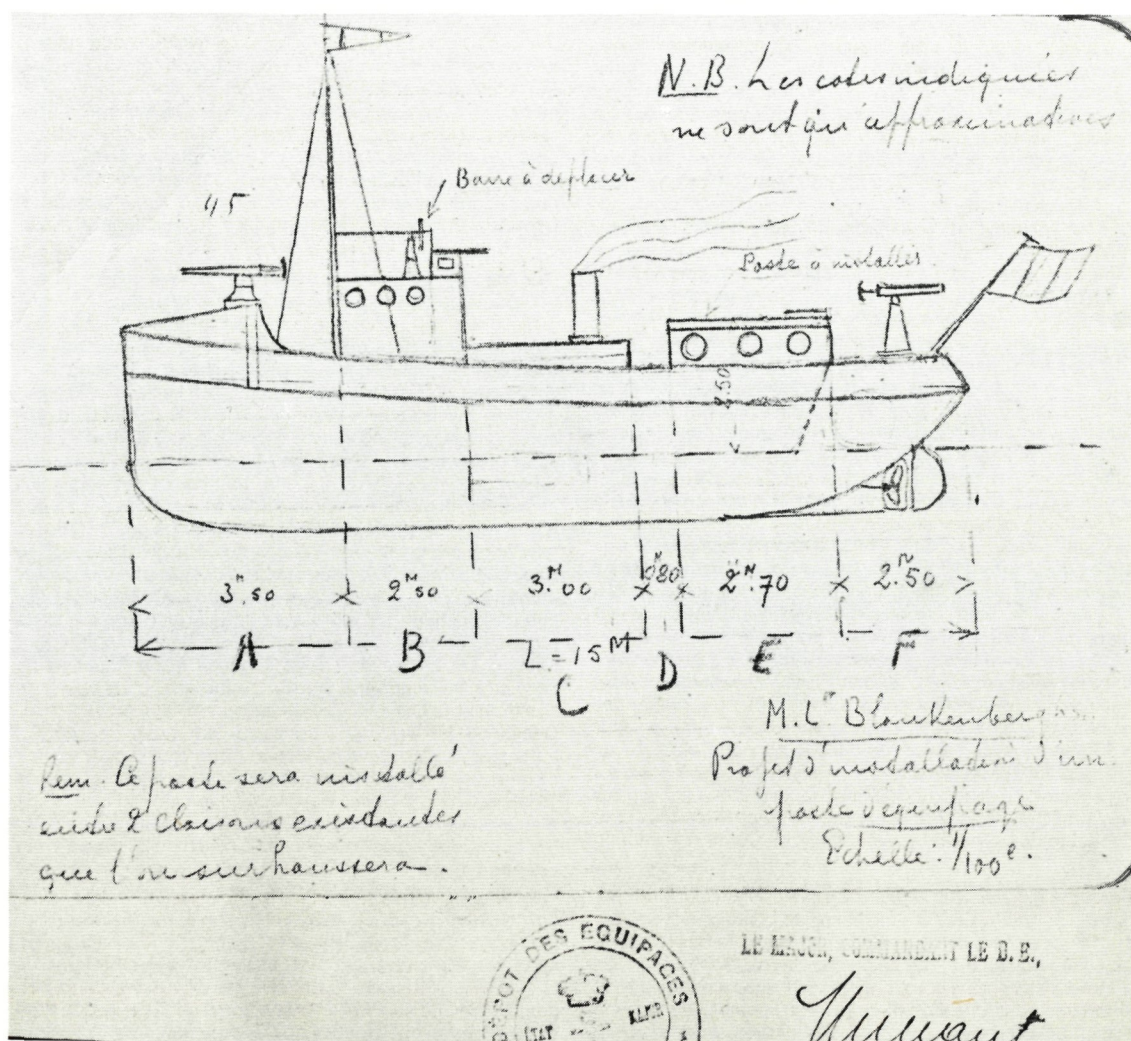 N.B. Les cotes indiquées
ne sont qu'approximatives
Barre à déplacer
45
Poste à installer
2.50
3.M50
2M50
3.M00
0M80
2M.70
2.M50
A
B
L=15M
C
D
E
F
M.Lr Blankenberghe
Projet d'installation d'un
poste d'équipage
Echelle: 1/100e.
Rem. Ce poste sera installé
entre 2 cloisons existantes
que l'on surhaussera.
DÉPOT DES EQUIPAGES
ETAT
LE MAJOR, COMMANDANT LE D.E.,